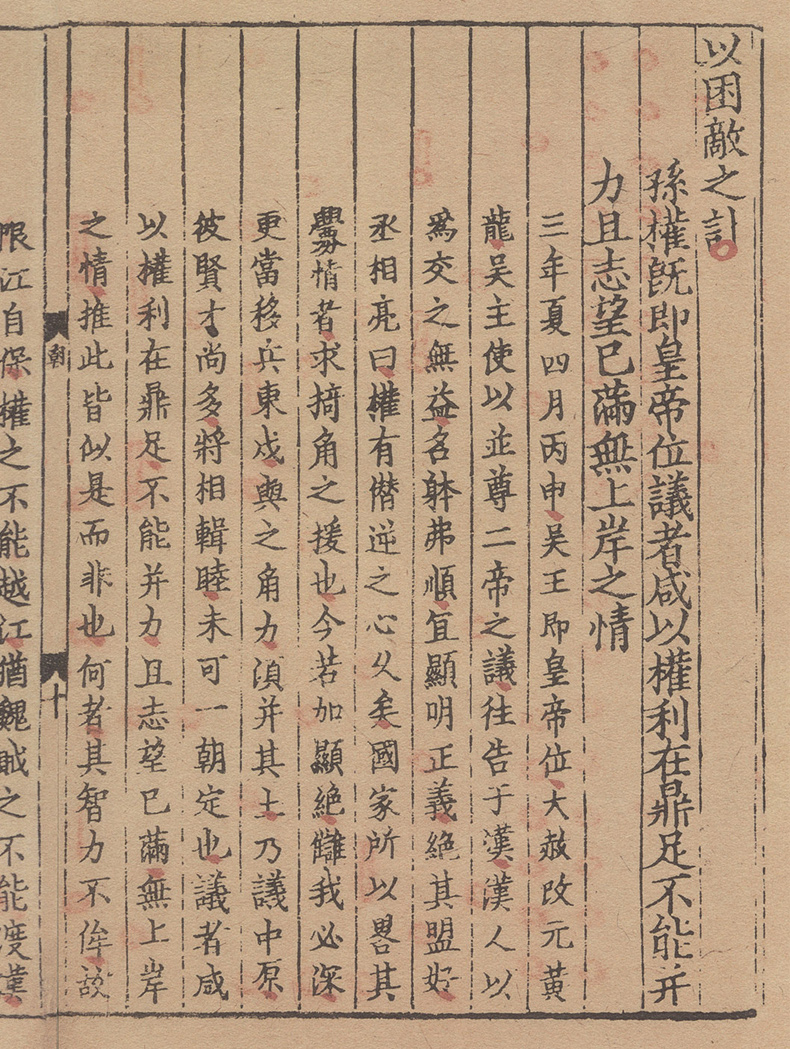 以困敵之計
孫權既即皇帝位議者咸以權利在鼎足不能并
力且志望已滿無上岸之情
三年夏四月丙申吴王即皇帝位大赦改元黃
龍吴主使以並尊二帝之議往告于漢漢人以
爲交之無益名躰弗順宜顯明正義絶其盟好
丞相亮曰權有僣逆之心乆矣國家所以畧其
釁情者求掎角之援也今若加顯絶讎我必深
更當移兵東戍與之角力湏并其土乃議中原
彼賢才尚多將相輯睦未可一朝定也議者咸
以權利在鼎足不能并力且志望已滿無上岸
之情推此皆似是而非也何者其智力不侔故
朝
十
限江自保權之不能越江猶魏賊之不能度漢